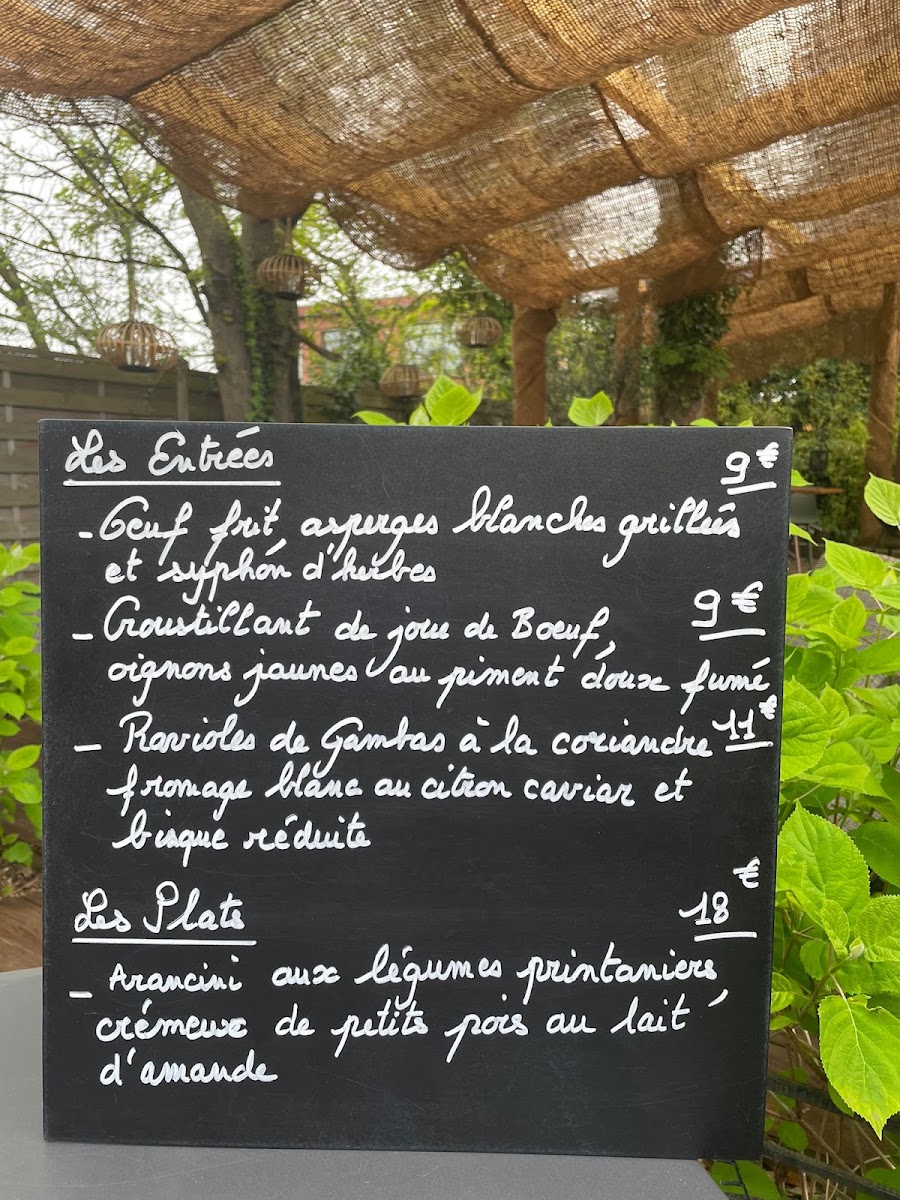 Les Entrées 9€
- Oeuf frit, asperges blanches grillées
et syphon d'herbes
9€
- Croustillant de joue de Boeuf,
oignons jaunes au piment doux fumé
- Ravioles de Gambas à la coriandre 11€
fromage blanc au citron caviar et
bisque réduite
Les Plats 18€
- Arancini aux légumes printaniers,
crémeux de petits pois au lait
d'amande